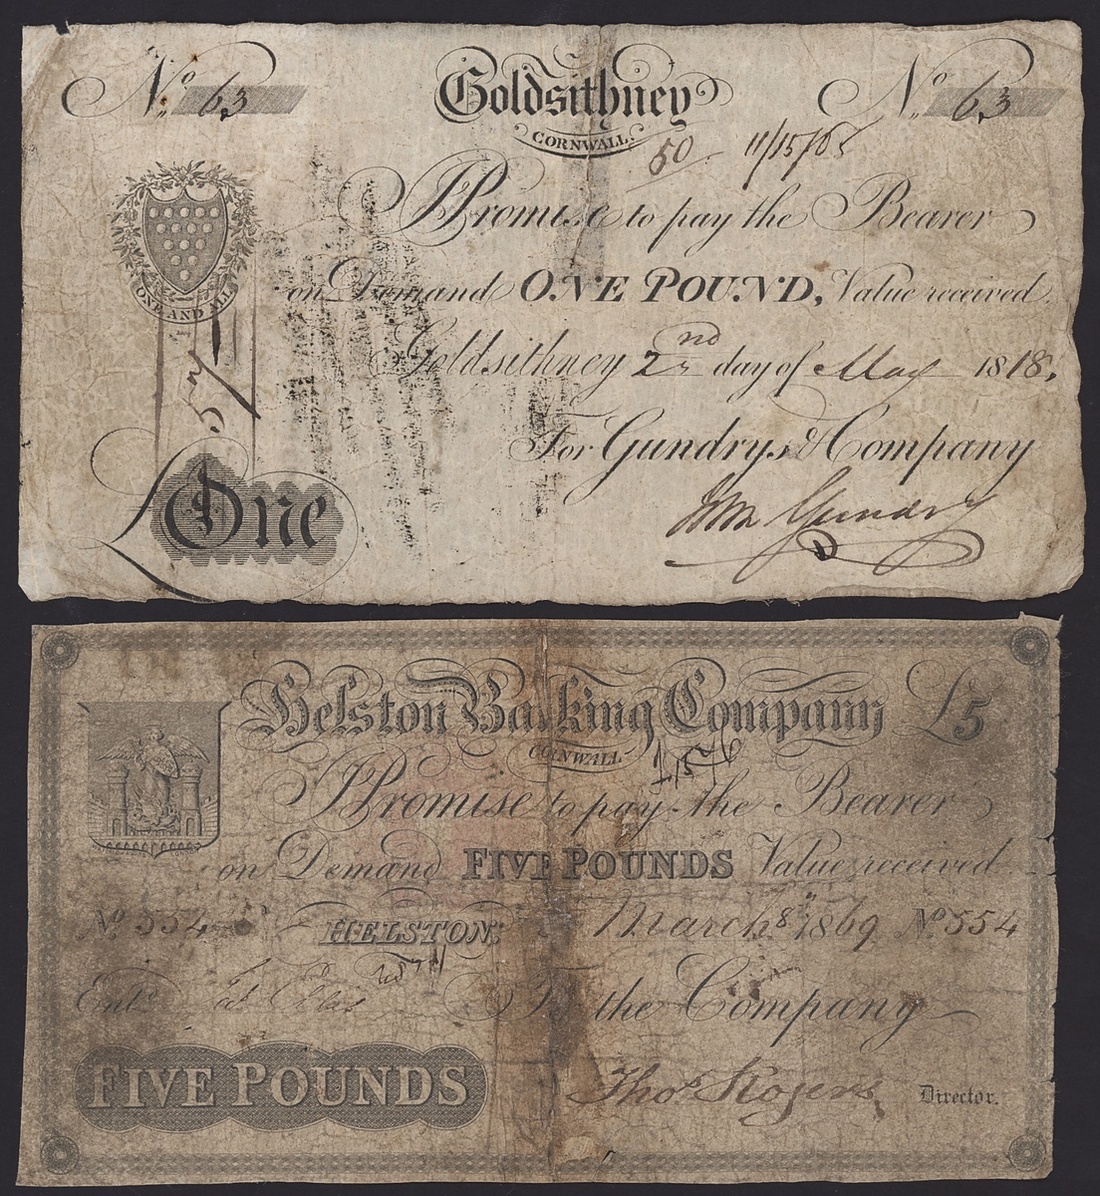 No. 63 Goldsithney No. 63
CORNWALL.
50 11/15/65
I Promise to pay the Bearer
on Demand ONE POUND, Value received
ONE AND ALL
Goldsithney 2nd day of May 1818,
For Gundrys & Company
£One
Wm Gundry
Helston Banking Company £5
CORNWALL
I Promise to pay the Bearer
on Demand FIVE POUNDS Value received
No. 554 HELSTON, March 8th 1869 No. 554
Entd
For the Company
FIVE POUNDS Thos Rogers Director.